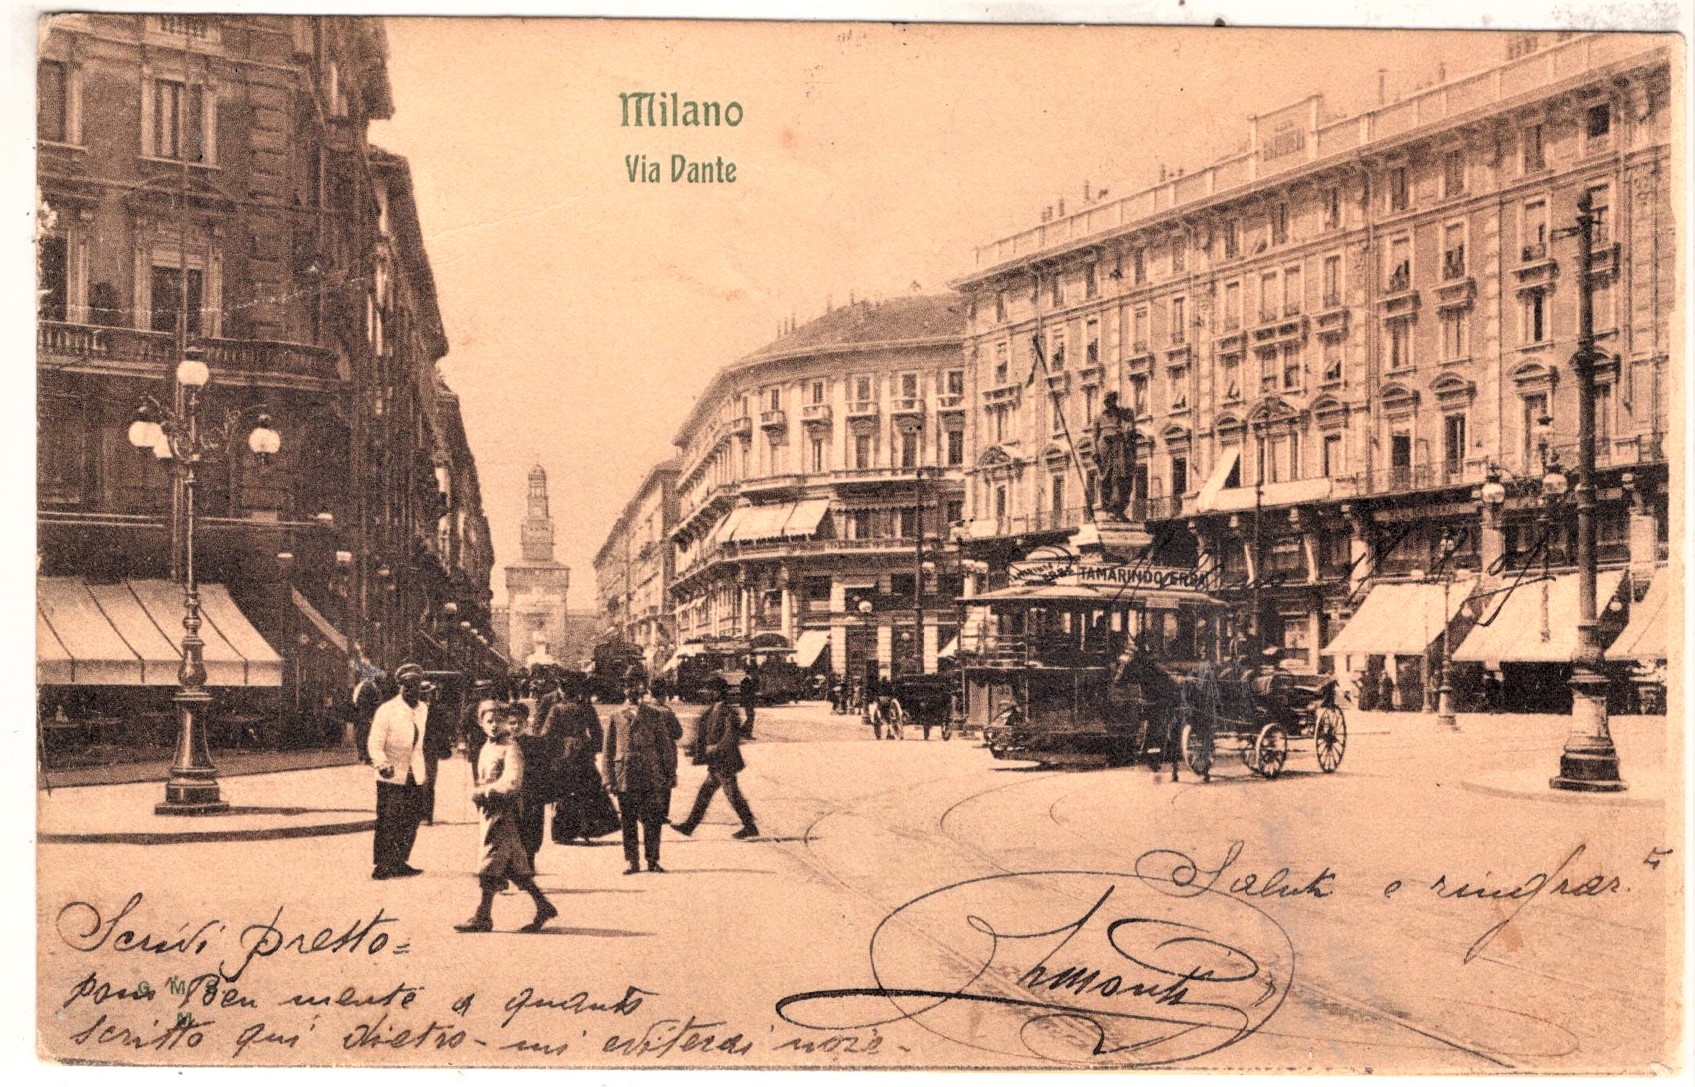 Milano
Via Dante
TAMARINDO ERBA
Saluti e ringraz.ti
Scrivi presto=
poni Ben mente a quanto
scritto qui dietro - mi eviterai noie -
G M
M